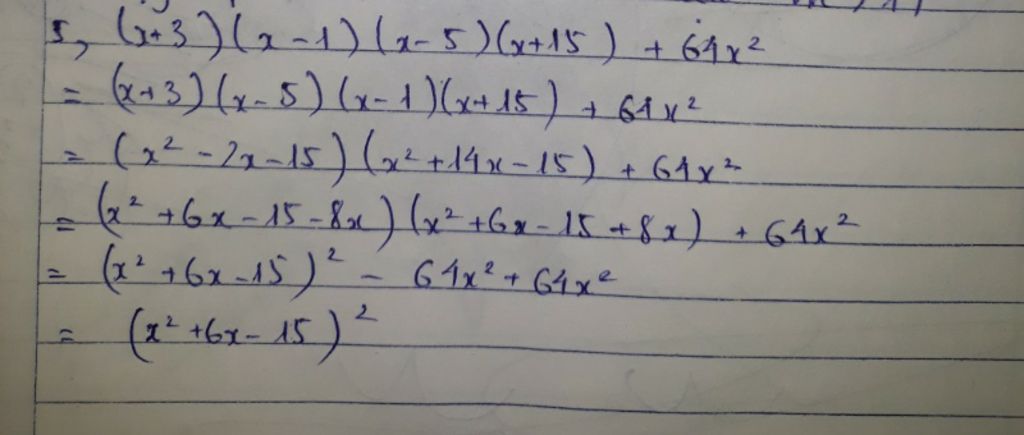 5, (x+3)(x-1)(x-5)(x+15) + 64x²
= (x+3)(x-5)(x-1)(x+15) + 64x²
= (x² - 2x - 15)(x² + 14x - 15) + 64x²
= (x² + 6x - 15 - 8x)(x² + 6x - 15 + 8x) + 64x²
= (x² + 6x - 15)² - 64x² + 64x²
= (x² + 6x - 15)²